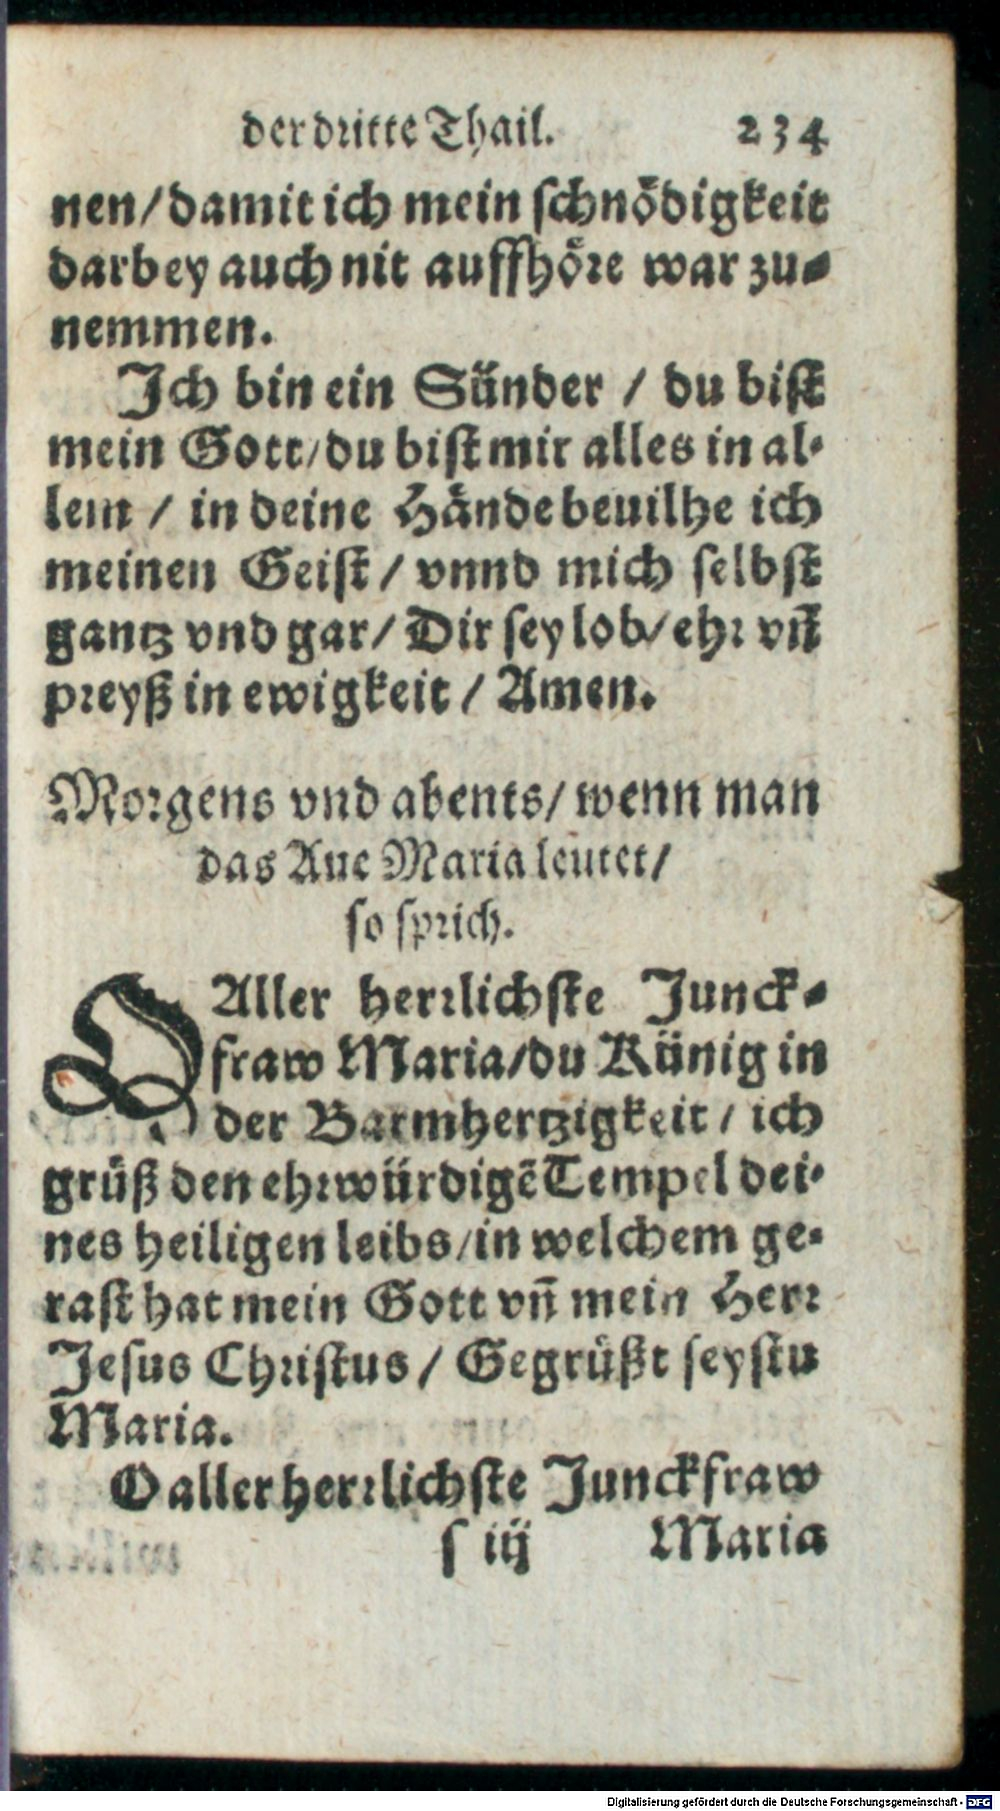 der dritte Thail. 234
nen/ damit ich mein schnoͤdigkeit
darbey auch nit auffhoͤre war zu-
nemmen.
Ich bin ein Suͤnder / du bist
mein Gott/ du bist mir alles in al-
lem / in deine Haͤnde beuilhe ich
meinen Geist / vnnd mich selbst
gantz vnd gar/ Dir sey lob/ ehr vñ
preyß in ewigkeit / Amen.
Morgens vnd abents/ wenn man
das Aue Maria leutet/
so sprich.
O Aller herrlichste Junck-
fraw Maria/ du Künig in
der Barmhertzigkeit / ich
gruͤß den ehrwürdigẽ Tempel dei-
nes heiligen leibs/ in welchem ge-
rast hat mein Gott vñ mein Herr
Jesus Christus / Gegruͤßt seystu
Maria.
O aller herrlichste Junckfraw
s iij Maria
Digitalisierung gefördert durch die Deutsche Forschungsgemeinschaft - DFG